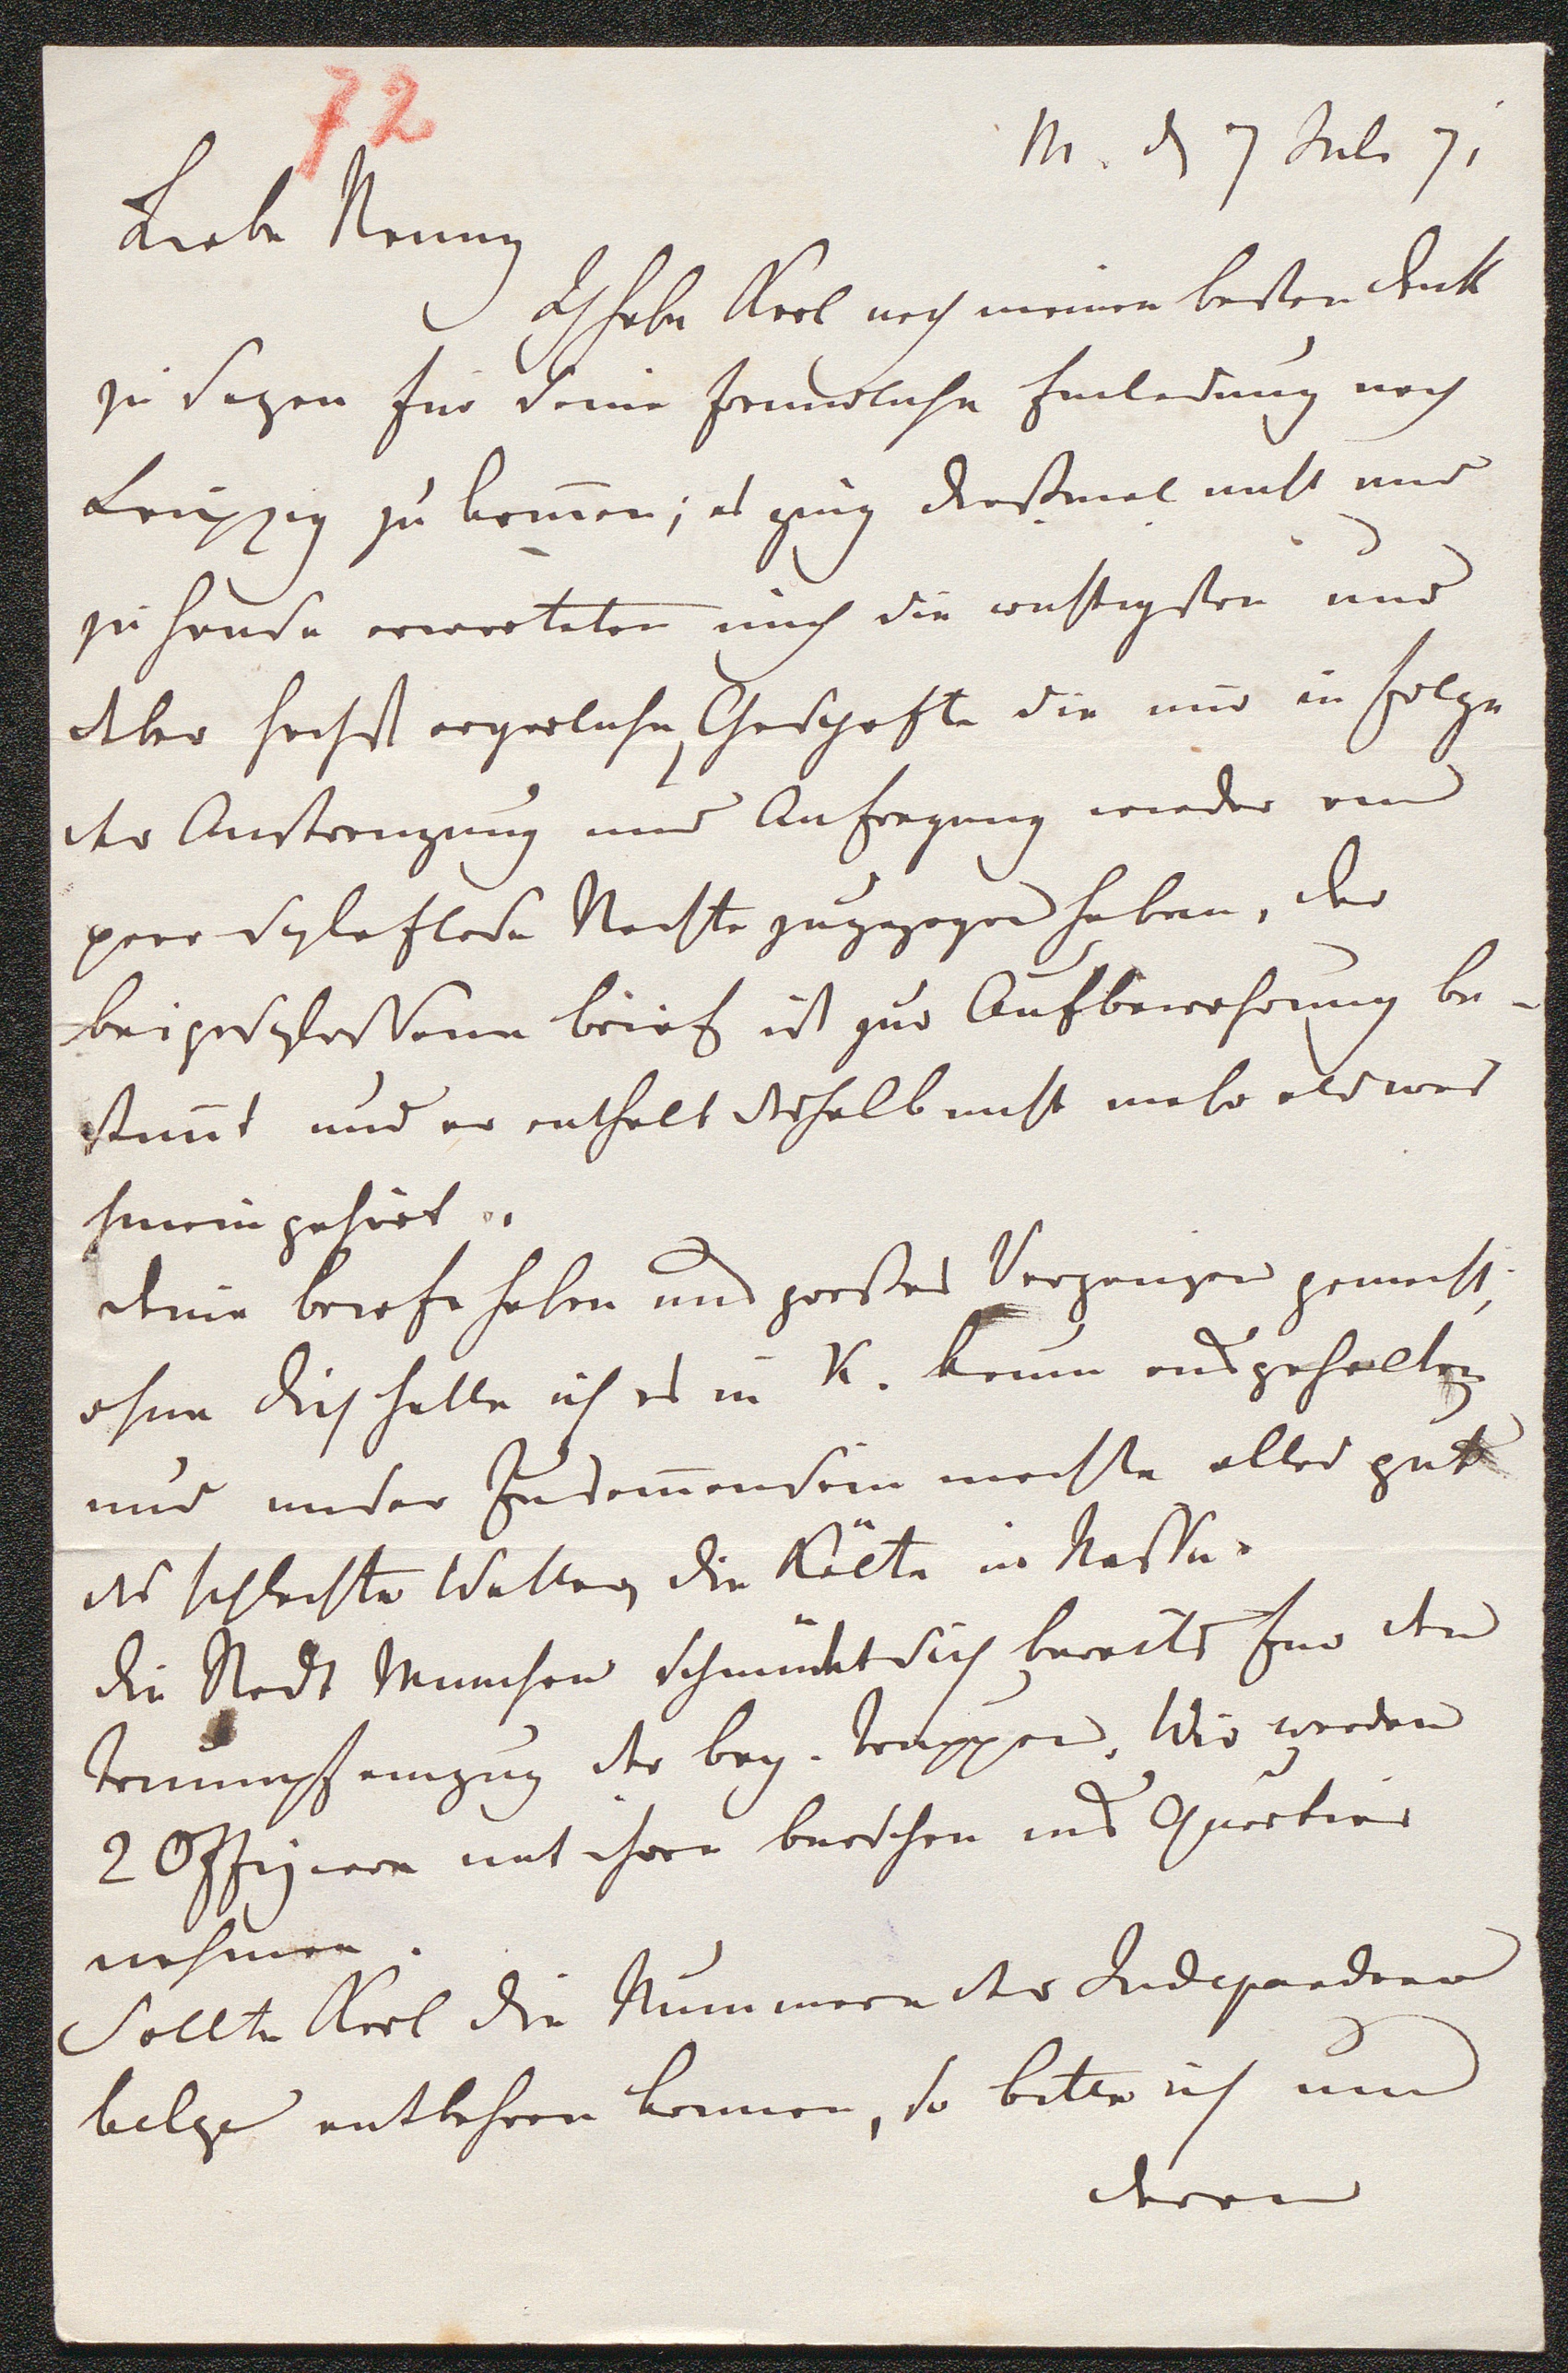 72
M. d 7 Juli 71
Liebe Nanny
Ich habe Karl noch meinen besten Dank
zu sagen für seine freundliche Einladung nach
Leipzig zu kom̄en; es ging dießmal nicht und
zu Hause erwarteten mich die wichtigsten und
aber höchst ärgerliche Geschäfte die mir in Folge
der Anstrengung und Aufregung wieder ein
paar schlaflose Nächte zugezogen haben, der
beigeschlossene Brief ist zur Aufbewahrung be-
stim̄t und er enthält deshalb nicht mehr als was
hinein gehört.
Deine Briefe haben uns großes Vergnügen gemacht;
ohne Dich hätte ich es in K. kaum ausgehalten
und unser Zusam̄ensein machte alles gut
das schlechte Wetter, die Kälte u Nässe.
Die Stadt München schmückt sich bereits für den
Triumpfeinzug der bay. Truppen. Wir werden
2 Offiziere mit ihren Burschen ins Quartier
nehmen.
Sollte Karl die Nummern der Independance
belge entbehren können, so bitte ich um
deren